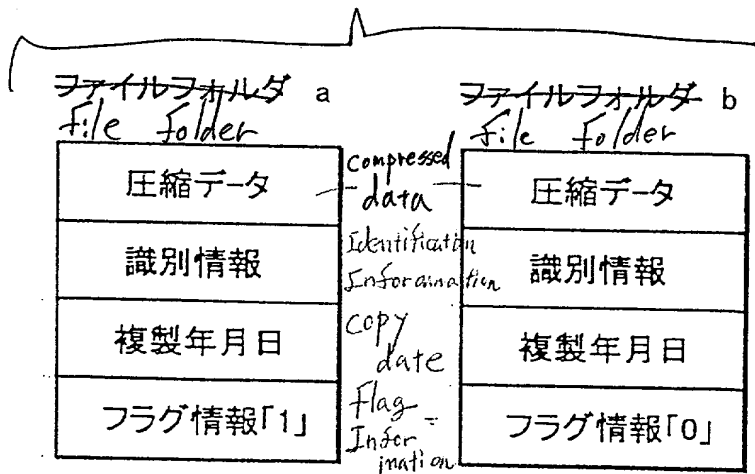 ファイルフォルダ a
file folder
圧縮データ
識別情報
複製年月日
フラグ情報「1」
compressed
data
Identification
Inforamation
copy
date
Flag
Infor
mation
ファイルフォルダ b
file folder
圧縮データ
識別情報
複製年月日
フラグ情報「0」